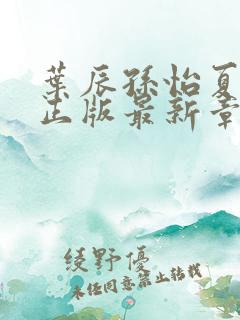 葉辰孫怡夏
正版最新章
綾野優
未经同意禁止转载